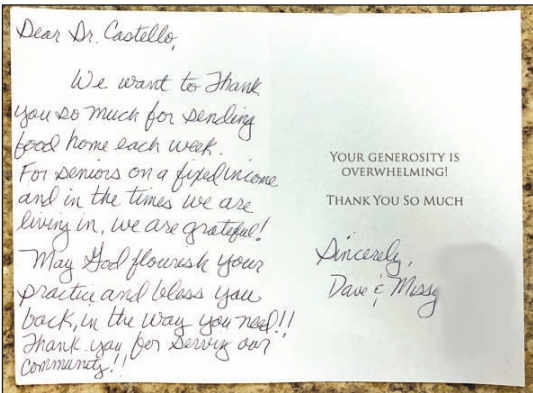 Dear Dr. Castello,
We want to Thank
you so much for sending
food home each week.
For seniors on a fixed income
and in the times we are
living in, we are grateful!
May God flourish your
practice and bless you
back, in the way you need!!
Thank you for serving our
community!!
YOUR GENEROSITY IS
OVERWHELMING!
THANK YOU SO MUCH
Sincerely,
Dave & Missy